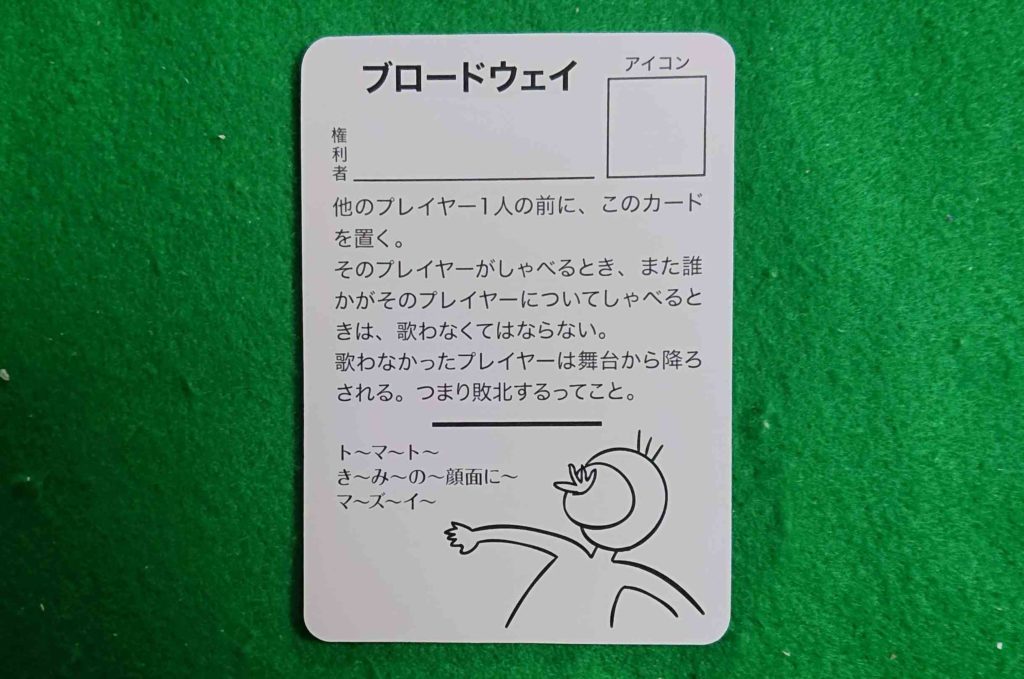 ブロードウェイ
アイコン
権利者
他のプレイヤー1人の前に、このカード
を置く。
そのプレイヤーがしゃべるとき、また誰
かがそのプレイヤーについてしゃべると
きは、歌わなくてはならない。
歌わなかったプレイヤーは舞台から降ろ
される。つまり敗北するってこと。
ト～マ～ト～
き～み～の～顔面に～
マ～ズ～イ～